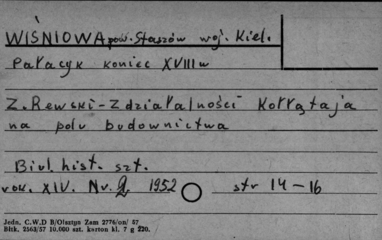 WIŚNIOWA pow. Staszów woj. Kiel.
Pałacyk koniec XVIII w
Z. Rewski - Z działalności Kołłątaja
na polu budownictwa
Biul. hist. szt.
rok. XIV. Nr. 2 1952 str 14-16
Jedn. C.W.D B/Olsztyn Zam 2776/on/ 57
Blzk. 2563/57 10.000 szt. karton kl. 7 g 220.